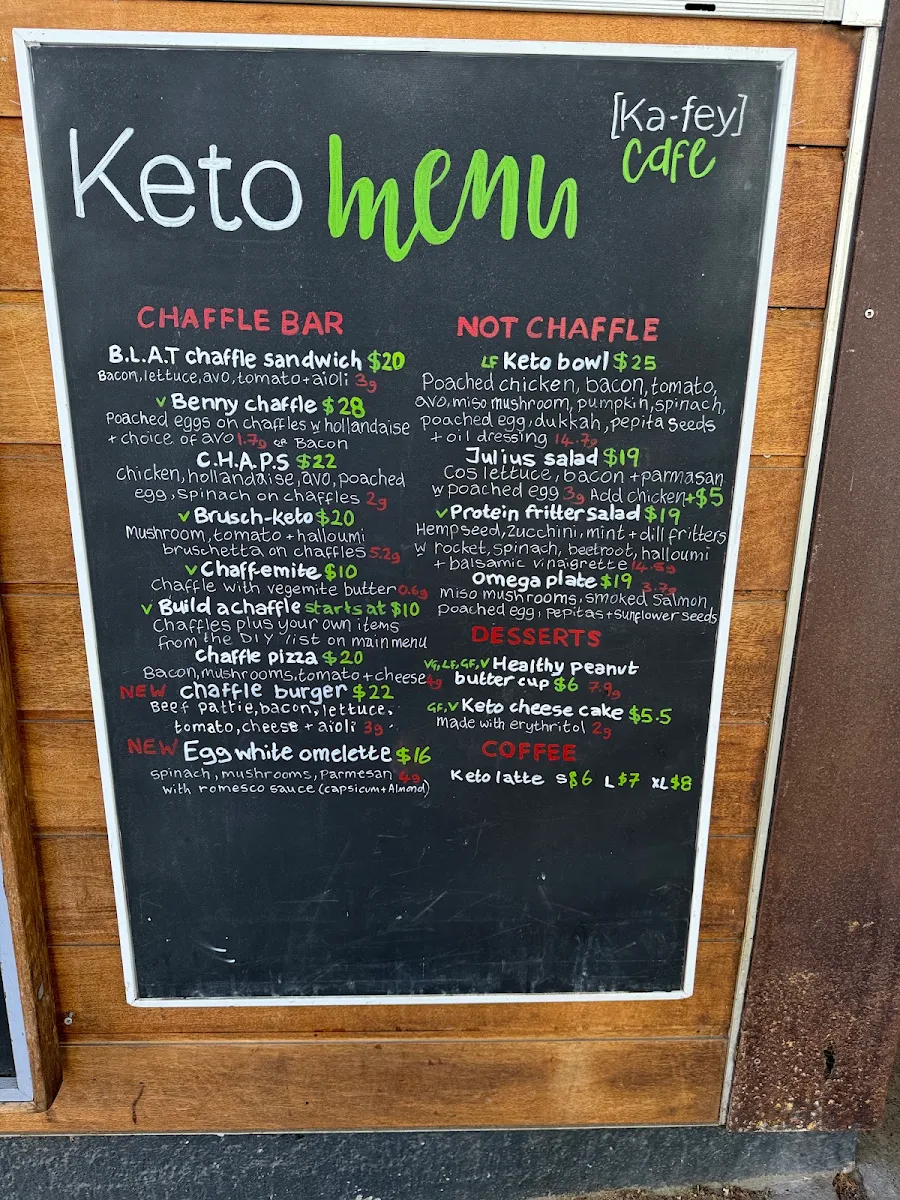 [Ka-fey]
cafe
Keto menu
CHAFFLE BAR
B.L.A.T chaffle sandwich $20
Bacon, lettuce, avo, tomato + aioli 3g
V Benny chaffle $28
Poached eggs on chaffles w hollandaise
+ choice of avo 1.7g or Bacon
C.H.A.P.S $22
chicken, hollandaise, avo, poached
egg, spinach on chaffles 2g
V Brusch-keto $20
Mushroom, tomato + halloumi
bruschetta on chaffles 5.2g
V Chaff-emite $10
Chaffle with vegemite butter 0.6g
V Build a chaffle starts at $10
Chaffles plus your own items
from the DIY list on main menu
Chaffle pizza $20
Bacon, mushrooms, tomato + cheese 4g
NEW chaffle burger $22
Beef pattie, bacon, lettuce,
tomato, cheese + aioli 3g
NEW Egg white omelette $16
spinach, mushrooms, Parmesan 4g
with romesco sauce (capsicum + Almond)
NOT CHAFFLE
LF Keto bowl $25
Poached chicken, bacon, tomato,
avo, miso mushroom, pumpkin, spinach,
poached egg, dukkah, pepita seeds
+ oil dressing 14.7g
Julius salad $19
Cos lettuce, bacon + parmasan
w poached egg 3g Add chicken +$5
V Protein fritter salad $19
Hempseed, zucchini, mint + dill fritters
w rocket, spinach, beetroot, halloumi
+ balsamic vinaigrette 14.5g
Omega plate $19 3.7g
miso mushrooms, smoked salmon,
poached egg, pepitas + sunflower seeds
DESSERTS
VG, LF, GF, V Healthy peanut
butter cup $6 7.9g
GF, V Keto cheese cake $5.5
made with erythritol 2g
COFFEE
Keto latte S $6 L $7 XL $8